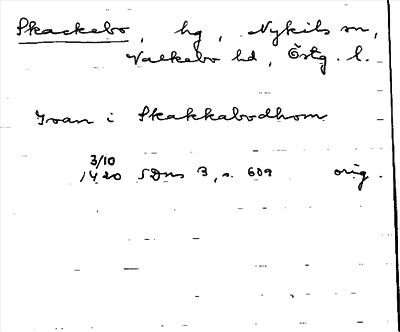 Skackebo, hg, Nykils sn,
Valkebo hd, Östg. l.
Ivan i Skakkabodhom
3/10
1420 SDns 3, s. 609 orig.